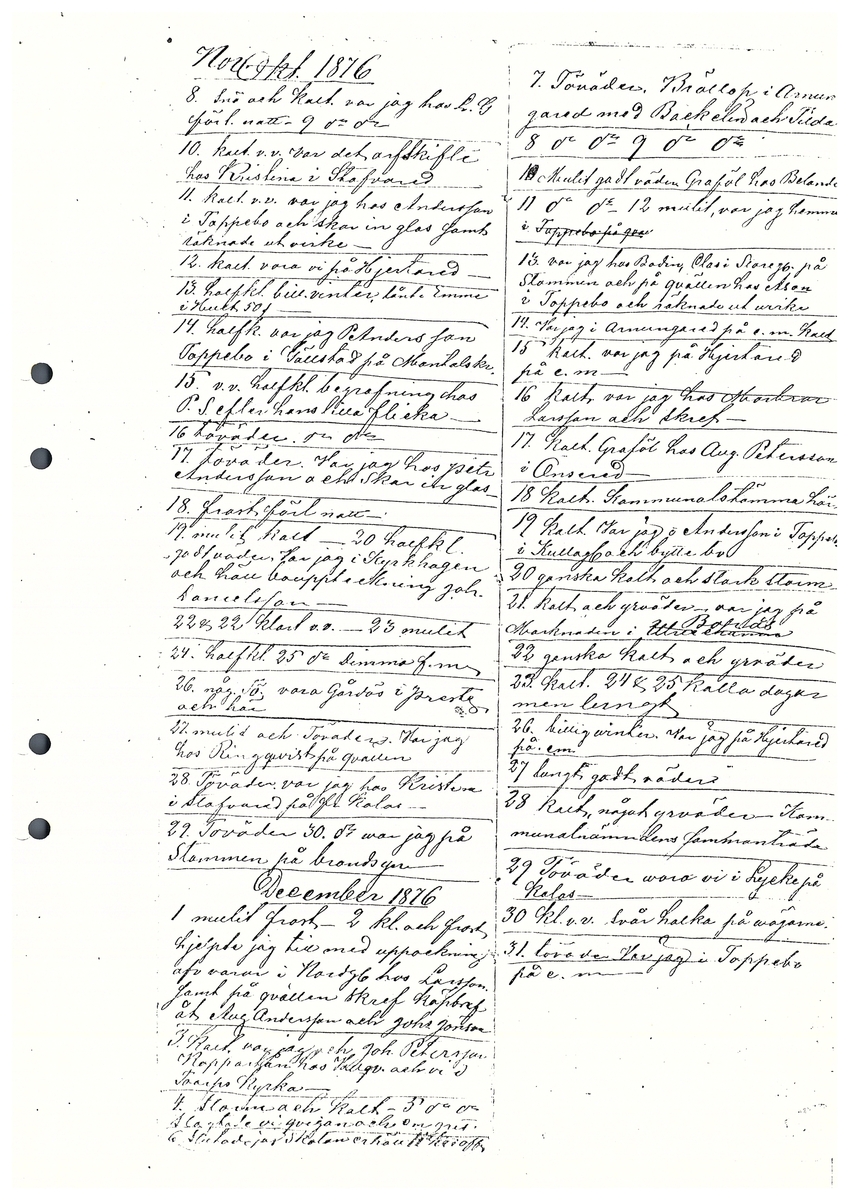 Nov. Okt. 1876
8. Snö och kalt. var jag hos L. G
förl. natt. 9 do do
10. kalt. v.v. Var det arfskifte
hos Kristina i Stafvared
11. kalt. v.v. var jag hos Andersson
i Toppebo och skar in glas samt
räknade ut virke —
12. kalt. vora vi på Hjertared —
13. halfkl. bill. vinter, lånte Emme
i Hult 50 f
14. halfk. var jag P. Andersson
Toppebo i Vällstad på Mantalskr.
15. v.v. halfkl. begrafning hos
P. S. efter hans lilla flicka —
16 töväder. do do
17. töväder. Var jag hos petr
Andersson och Skar in glas
18. frost förl natt —
19. mulit kalt — 20 halfkl.
godt väder. Var jag i Kyrkhagen
och höll boupptekning Joh.
Danielsson —
22 & 22 klart v.v. — 23 mulit
24. halfkl. 25 do Dimma f.m
26. någ. Tö. vora Gårdös i Preste
och här
27. mulit och Töväder. Var jag
hos Ringqvist på qvällen
28. Töväder. var jag hos Kristina
i Stafvared på Kalas —
29. Töväder 30. do war jag på
Stommen på brandsyn
December 1876
1 mulit frost — 2 kl. och frost
hjelpte jag till med uppackning
afv varor i Nordgb hos Larsson
samt på qvällen Skref Köpbref
åt Aug Andersson och Johs Jonson
3. Kalt. var jag och Joh. Petersson
Kopparhan hos och vi i
Torips Kyrka —
4. Storm och kalt — 5 do do
Slagtade vi qvigan och en gris
6 Slutade jag Skolan
7. Töväder. Bröllop i Arnun
gared med Backelin och Tilda
8 do do 9 do do
10 Mulit godt väder Graföl hos Belande
11 do do — 12 mulit, var jag hemma
i Toppebo på qva
13. var jag hos Bodin, Clas i Storegb. på
Stommen och på qvällen hos Ason
i Toppebo och räknade ut virke
14. Var jag i Arnungared på e.m. Kalt
15 kalt. var jag på Hjertared
på e. m —
16 kalt, var jag hos
Larsson och skref —
17. Kalt. Graföl hos Aug. Petersson
i Önserad —
18 kalt. Kommunalstämma här
19 kalt. Var jag o Andersson i Toppeb
i Kullagb och bytte bo
20 ganska kalt och stark storm
21. kalt och yrväder — var jag på
Marknaden i Ulricehamn Borås
22 ganska kalt och yrväder
23. kalt. 24 & 25 kalla dagar
men lungt
26. billig winter. Var jag på Hjertared
på e.m
27 lungt godt väder
28 kalt, något yrväder — Kom-
munalnämndens Sammanträde
29 Töväder wora vi i Lycke på
Kalas —
30 kl. v. v. Svår halka på vägarne.
31. töväder Var jag i Toppebo
på e. m —